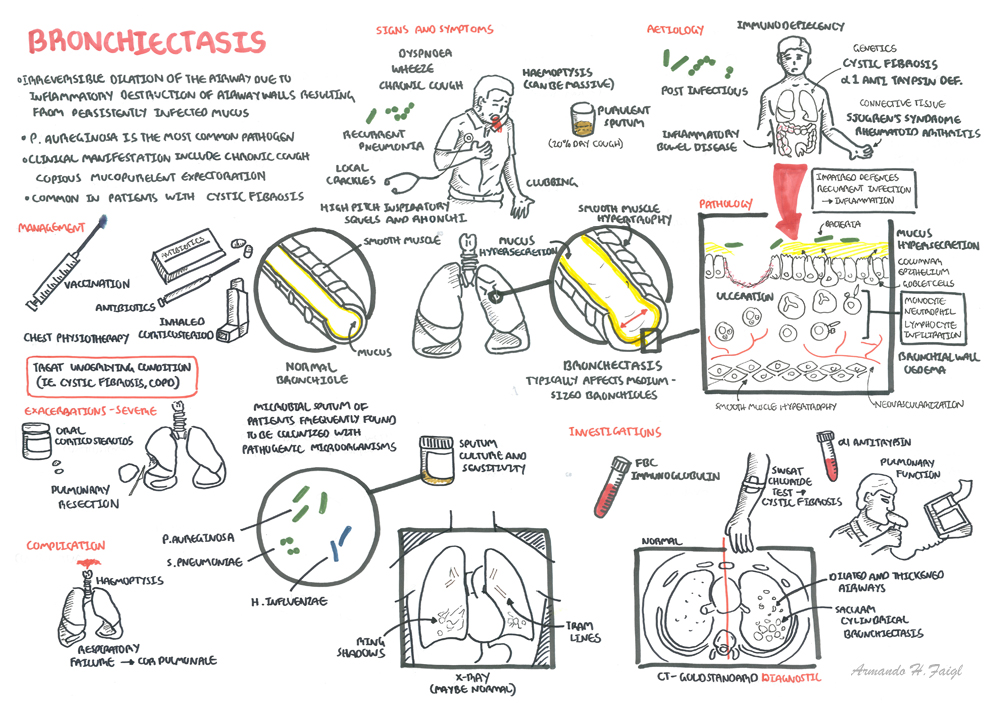 BRONCHIECTASIS
• IRREVERSIBLE DILATION OF THE AIRWAY DUE TO
INFLAMMATORY DESTRUCTION OF AIRWAY WALLS RESULTING
FROM PERSISTENTLY INFECTED MUCUS
• P. AUREGINOSA IS THE MOST COMMON PATHOGEN
• CLINICAL MANIFESTATION INCLUDE CHRONIC COUGH
COPIOUS MUCOPURELENT EXPECTORATION
• COMMON IN PATIENTS WITH CYSTIC FIBROSIS
SIGNS AND SYMPTOMS
DYSPNOEA
WHEEZE
CHRONIC COUGH
HAEMOPTYSIS
(CAN BE MASSIVE)
RECURRENT
PNEUMONIA
PURULENT
SPUTUM
(20% DRY COUGH)
LOCAL
CRACKLES
CLUBBING
HIGH PITCH INSPIRATORY
SQUELS AND RHONCHI
AETIOLOGY
IMMUNODEFICIENCY
POST INFECTIOUS
GENETICS
CYSTIC FIBROSIS
α1 ANTI TRYPSIN DEF.
CONNECTIVE TISSUE
SJOGREN'S SYNDROME
RHEUMATOID ARTHRITIS
INFLAMMATORY
BOWEL DISEASE
IMPAIRED DEFENCES
RECURRENT INFECTION
→ INFLAMMATION
MANAGEMENT
VACCINATION
ANTIBIOTICS
ANTIBIOTICS
INHALED
CORTICOSTEROID
CHEST PHYSIOTHERAPY
TREAT UNDERLYING CONDITION
(IE. CYSTIC FIBROSIS, COPD)
SMOOTH MUSCLE
MUCUS
NORMAL
BRONCHIOLE
MUCUS
HYPERSECRETION
SMOOTH MUSCLE
HYPERTRATHY
BRONCHECTASIS
TYPICALLY AFFECTS MEDIUM-
SIZED BRONCHIOLES
PATHOLOGY
BACTERIA
MUCUS
HYPERSECRETION
COLUMNAR
EPITHELIUM
GOBLET CELLS
ULCERATION
MONOCYTE
NEUTROPHIL
LYMPHOCYTE
INFILTRATION
BRONCHIAL WALL
OEDEMA
SMOOTH MUSCLE HYPERTROPHY
NEOVASCULARIZATION
EXACERBATIONS - SEVERE
ORAL
CORTICOSTEROIDS
PULMONARY
RESECTION
MICROBIAL SPUTUM OF
PATIENTS FREQUENTLY FOUND
TO BE COLONIZED WITH
PATHOGENIC MICROORGANISMS
SPUTUM
CULTURE AND
SENSITIVITY
P. AUREGINOSA
S. PNEUMONIAE
H. INFLUENZAE
COMPLICATION
HAEMOPTYSIS
RESPIRATORY
FAILURE → COR PULMONALE
RING
SHADOWS
TRAM
LINES
X-RAY
(MAYBE NORMAL)
INVESTIGATIONS
FBC
IMMUNOGLOBULIN
SWEAT
CHLORIDE
TEST →
CYSTIC FIBROSIS
α1 ANTITRYPSIN
PULMONARY
FUNCTION
NORMAL
DILATED AND THICKENED
AIRWAYS
SACULAR
CYLINDRICAL
BRONCHIECTASIS
CT - GOLD STANDARD DIAGNOSTIC
Armando H. Faigl